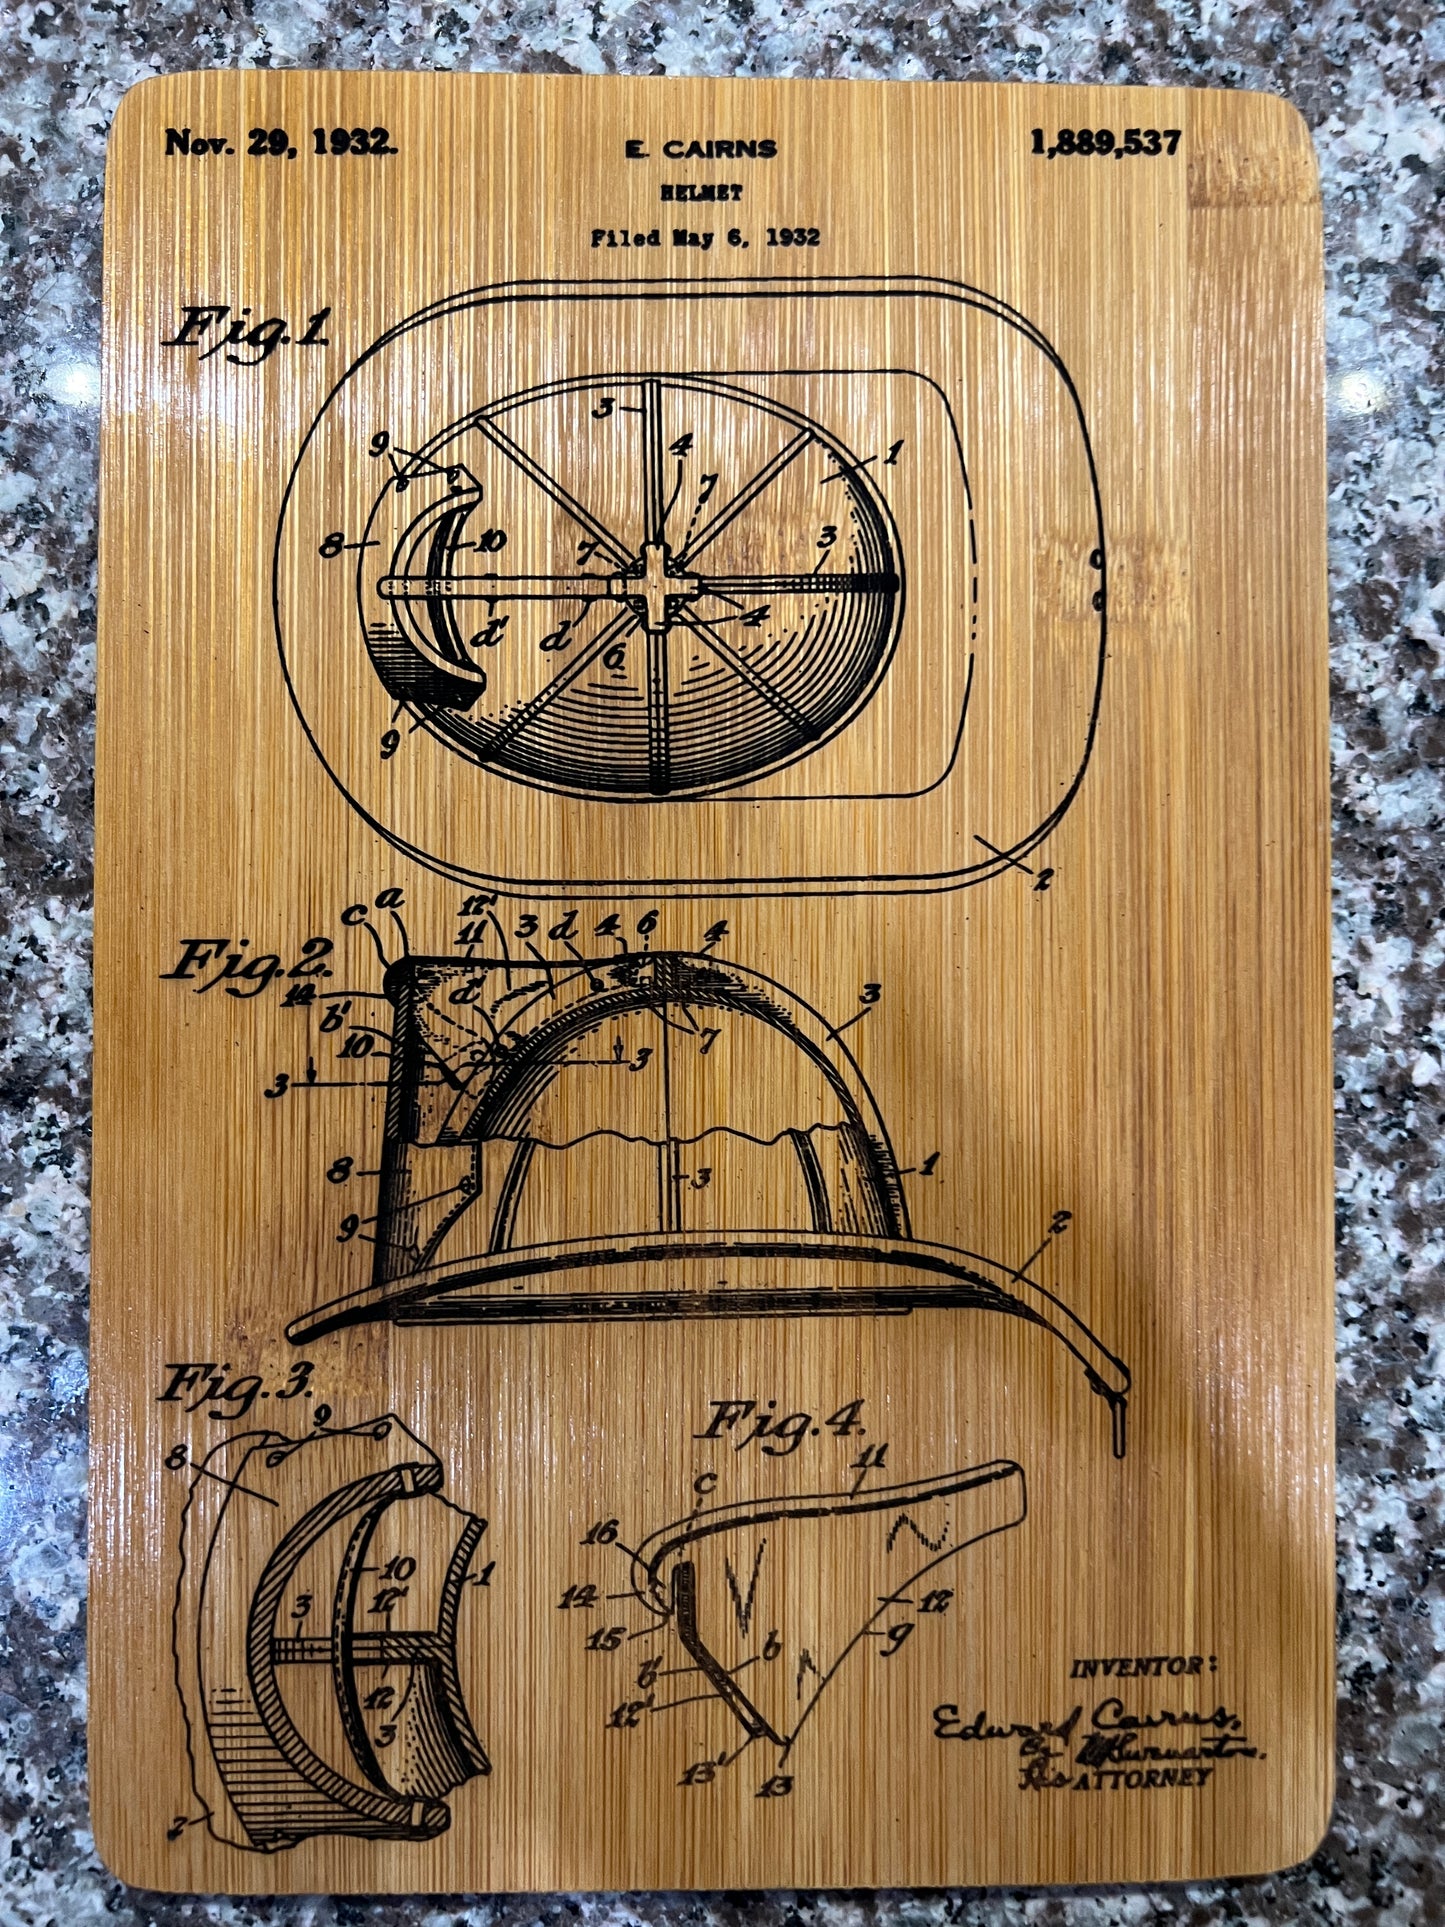 Nov. 29, 1932. E. CAIRNS 1,889,537
HELMET
Filed May 6, 1932
Fig.1.
3
9 4 1
7
8 10 7 3
d' d 4
6
9
2
a 12' 3 d 4 6 4
c 11
Fig.2.
14 d' 3
b'
10 7
3 3
8 3 1
9 2
Fig.3.
9 Fig.4.
8 11
c
16
10 1
3 12' 14 12
15 9
b' b INVENTOR:
12 12' Edward Cairns,
3 By
13' 13 His ATTORNEY
2